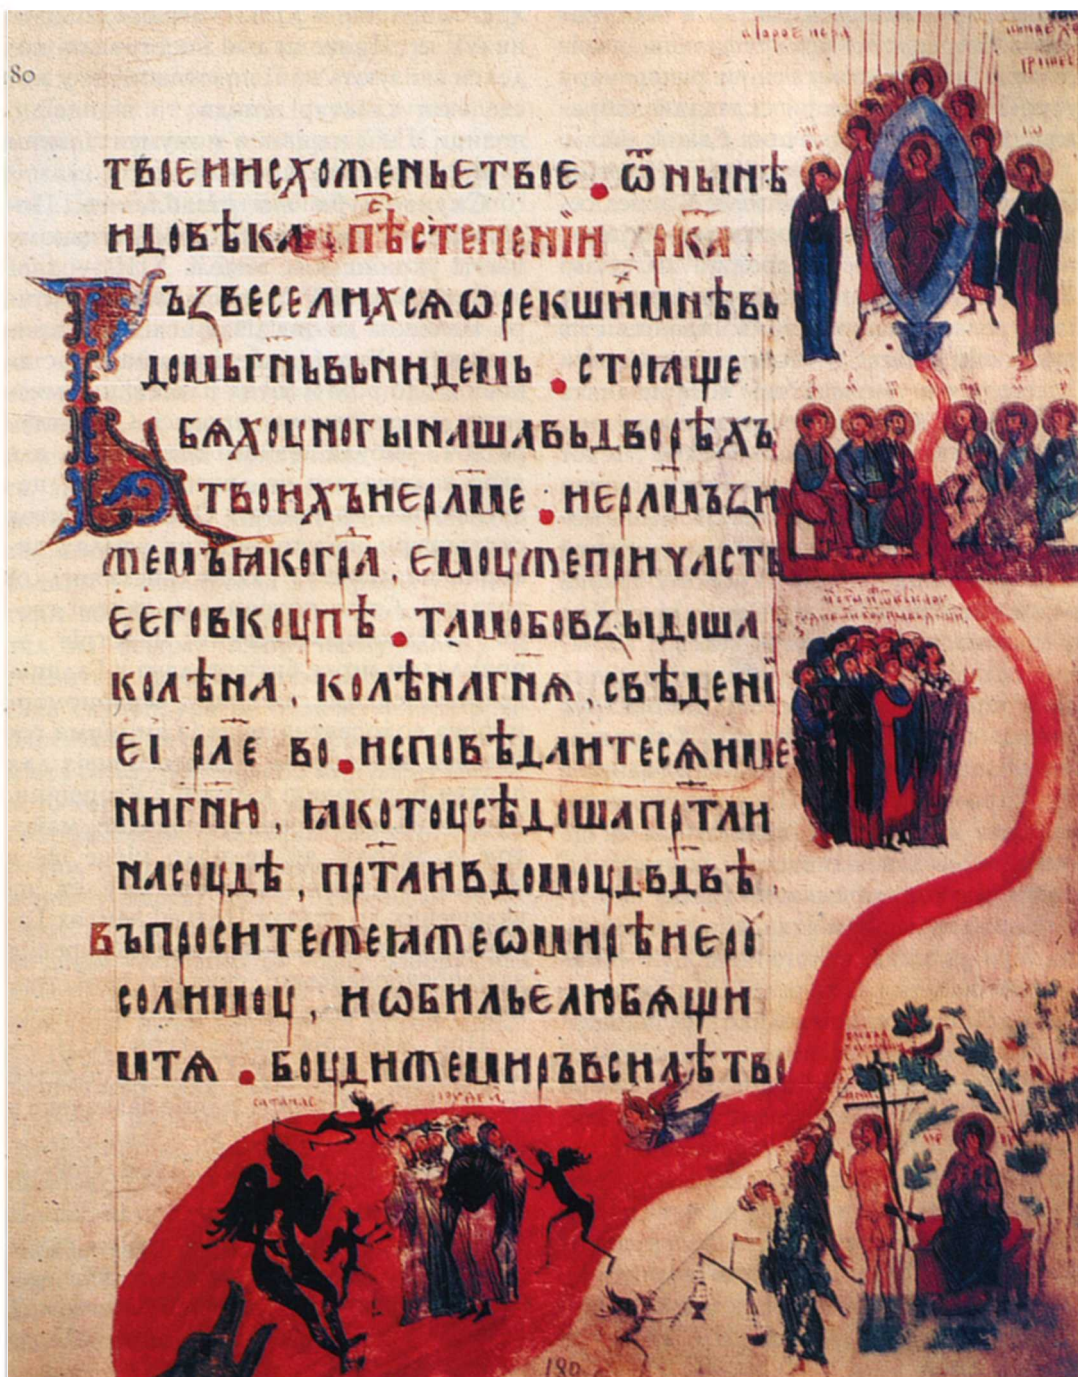 80
твоеиисхоменьетвое . ѿнынѣ
идовѣка пѣс҇степенїи рк҃а
Възвеселихсяѡрекшиимнѣвь
домьгн҃ьвьнидемь . стоꙗще
бѧхоуногынашавьдворѣхъ
твоихънер҃лме : нер҃лмъзи
жемъꙗкогр҃а , емоужепричасть
еегов коупѣ . тамобовзыдоша
колѣна , колѣнагн҃ѧ , свѣденї
еі ꙁл҃е во . исповѣдаитесѧиме
нигн҃и , ꙗкотоусѣдошапр҃тли
насоудѣ , пр҃тливдомоудв҃двѣ .
въпроситежеꙗжеѡмирѣиеро
солимоу , иѡбильелюбѧщи
мтѧ . боудижемиръвсилѣтво
сатанас
июдеи
180